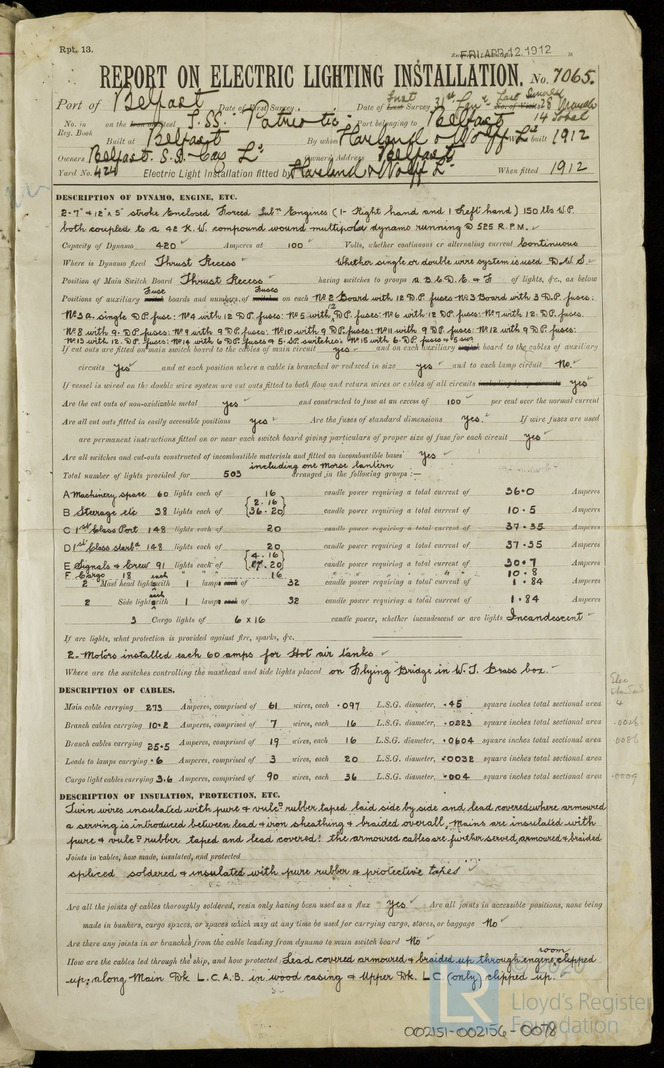 Rpt. 13.
FRI. APR. 12. 1912
REPORT ON ELECTRIC LIGHTING INSTALLATION. No. 7065.
Port of Belfast Date of First Survey Date of First Survey 31st Jany Last Survey 28 March
No. in Reg. Book on the Iron or Steel T.SS. "Patriotic" Port belonging to Belfast
Built at Belfast By whom Harland & Wolff Ld When built 1912
Owners Belfast S.S. Coy Ld Owners' Address Belfast
Yard No. 424 Electric Light Installation fitted by Harland & Wolff Ld When fitted 1912
DESCRIPTION OF DYNAMO, ENGINE, ETC.
2-7" & 12" x 5" stroke Enclosed Forced Lubn Engines (1- Right hand and 1 Left hand) 150 lbs W.P.
both coupled to a 42 K.W. compound wound multipolar dynamo running @ 525 R.P.M.
Capacity of Dynamo 420 Amperes at 100 Volts, whether continuous or alternating current Continuous
Where is Dynamo fixed Thrust Recess Whether single or double wire system is used D.W.S.
Position of Main Switch Board Thrust Recess having switches to groups A.B.C.D.E. & F of lights, &c., as below
Positions of auxiliary Fuse switch boards and numbers of Fuses switches on each No 2 Board with 12 D.P. fuses: No 3 Board with 3 D.P. fuses:
No 3A. single D.P. fuse: No 4 with 12 D.P. fuses: No 5 with 12 D.P. fuses: No 6 with 12 D.P. fuses: No 7 with 12 D.P. fuses.
No 8 with 9. D.P. fuses: No 9 with 9 D.P. fuses: No 10 with 9 D.P. fuses: No 11 with 9 D.P. fuses: No 12 with 9 D.P. fuses:
No 13 with 12. D.P. fuses: No 14 with 6 D.P. fuses & 5. S.P. switches: No 15 with 6. D.P. fuses & 5 sws
If cut outs are fitted on main switch board to the cables of main circuit yes and on each auxiliary switch board to the cables of auxiliary
circuits yes and at each position where a cable is branched or reduced in size yes and to each lamp circuit No.
If vessel is wired on the double wire system are cut outs fitted to both flow and return wires or cables of all circuits including lamp circuits yes
Are the cut outs of non-oxidizable metal yes and constructed to fuse at an excess of 100 per cent over the normal current
Are all cut outs fitted in easily accessible positions yes Are the fuses of standard dimensions yes. If wire fuses are used
are permanent instructions fitted on or near each switch board giving particulars of proper size of fuse for each circuit yes
Are all switches and cut-outs constructed of incombustible materials and fitted on incombustible bases yes
Total number of lights provided for 503 including one morse lantern arranged in the following groups:—
A Machinery space 60 lights each of 16 candle power requiring a total current of 36.0 Amperes
B Steerage etc 38 lights each of {2.16 36.20} candle power requiring a total current of 10.5 Amperes
C 1st Class Port 148 lights each of 20 candle power requiring a total current of 37.35 Amperes
D 1st Class starbd 148 lights each of 20 candle power requiring a total current of 37.35 Amperes
E Signals & Crew 91 lights each of {4.16 87.20} candle power requiring a total current of 30.7 Amperes
F Cargo 18 " " 16 " " " " " 10.8
2 Mast head light each with 1 lamps each of 32 candle power requiring a total current of 1.84 Amperes
2 Side light each with 1 lamps each of 32 candle power requiring a total current of 1.84 Amperes
3 Cargo lights of 6 x 16 candle power, whether incandescent or arc lights Incandescent
If arc lights, what protection is provided against fire, sparks, &c.
2- Motors installed each 60 amps for Hot air tanks
Where are the switches controlling the masthead and side lights placed on Flying Bridge in W.T. Brass box.
DESCRIPTION OF CABLES.
Main cable carrying 273 Amperes, comprised of 61 wires, each .097 L.S.G. diameter, .45 square inches total sectional area
Branch cables carrying 10.2 Amperes, comprised of 7 wires, each 16 L.S.G. diameter, .0223 square inches total sectional area
Branch cables carrying 25.5 Amperes, comprised of 19 wires, each 16 L.S.G. diameter, .0604 square inches total sectional area
Leads to lamps carrying .6 Amperes, comprised of 3 wires, each 20 L.S.G. diameter, .0032 square inches total sectional area
Cargo light cables carrying 3.6 Amperes, comprised of 90 wires, each 36 L.S.G. diameter, .004 square inches total sectional area
DESCRIPTION OF INSULATION, PROTECTION, ETC.
Twin wires insulated with pure & vulcd rubber taped laid side by side and lead covered where armoured
a serving is introduced between lead & iron sheathing & braided overall. Mains are insulated with
pure & vulcd rubber taped and lead covered: the armoured cables are further served, armoured & braided
Joints in cables, how made, insulated, and protected
spliced soldered & insulated with pure rubber & protective tapes
Are all the joints of cables thoroughly soldered, resin only having been used as a flux Yes Are all joints in accessible positions, none being
made in bunkers, cargo spaces, or spaces which may at any time be used for carrying cargo, stores, or baggage No
Are there any joints in or branches from the cable leading from dynamo to main switch board No
How are the cables led through the ship, and how protected Lead covered armoured & braided up through engine room clipped
up: along Main Dk L.C.A.B. in wood casing & Upper Dk. L.C (only) clipped up.
© 2020
LR
Lloyd's Register
Foundation
002151-002156-0078